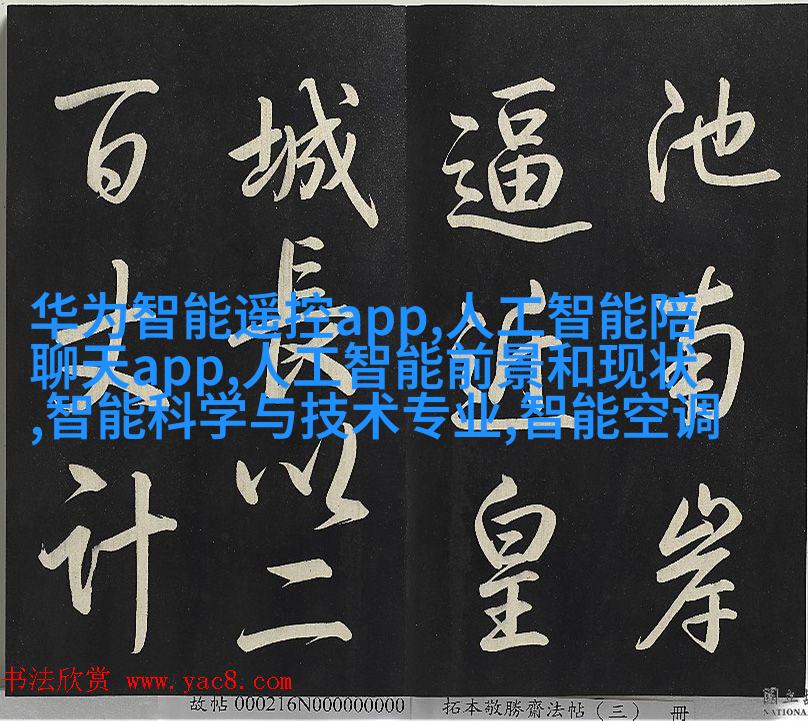 池南岸
逼近皇
城長以二
百丈計
华为智能遥控app,人工智能陪
聊天app,人工智能前景和现状
,智能科学与技术专业,智能空调
书法欣赏 www.yac8.com
故帖 000216N000000000 拓本敬勝齋法帖（三） 冊
國立
NATIONA